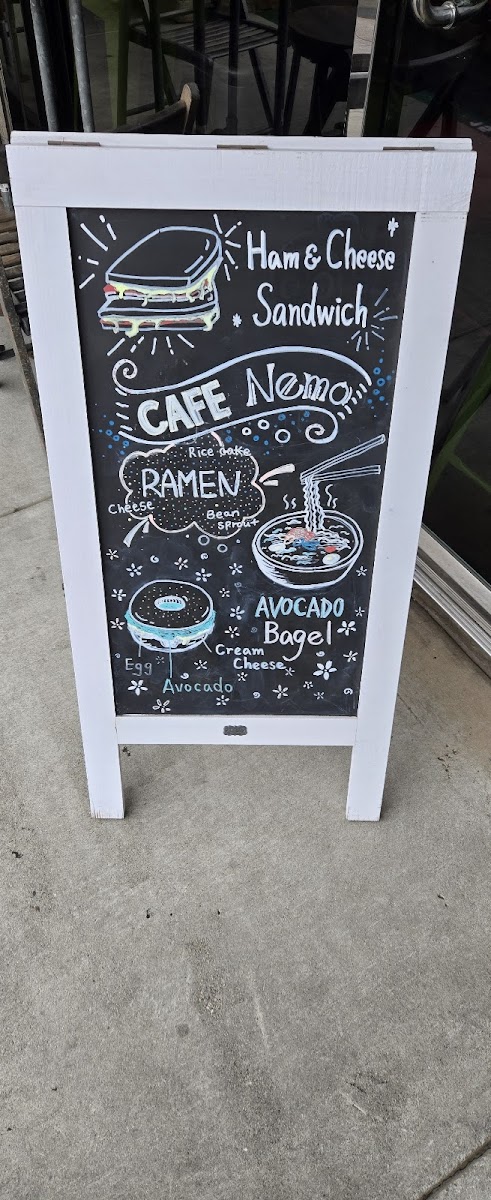 Ham & Cheese
Sandwich
CAFE Nemo
Rice cake
RAMEN
Cheese
Bean
sprout
AVOCADO
Bagel
Cream
Cheese
Egg
Avocado